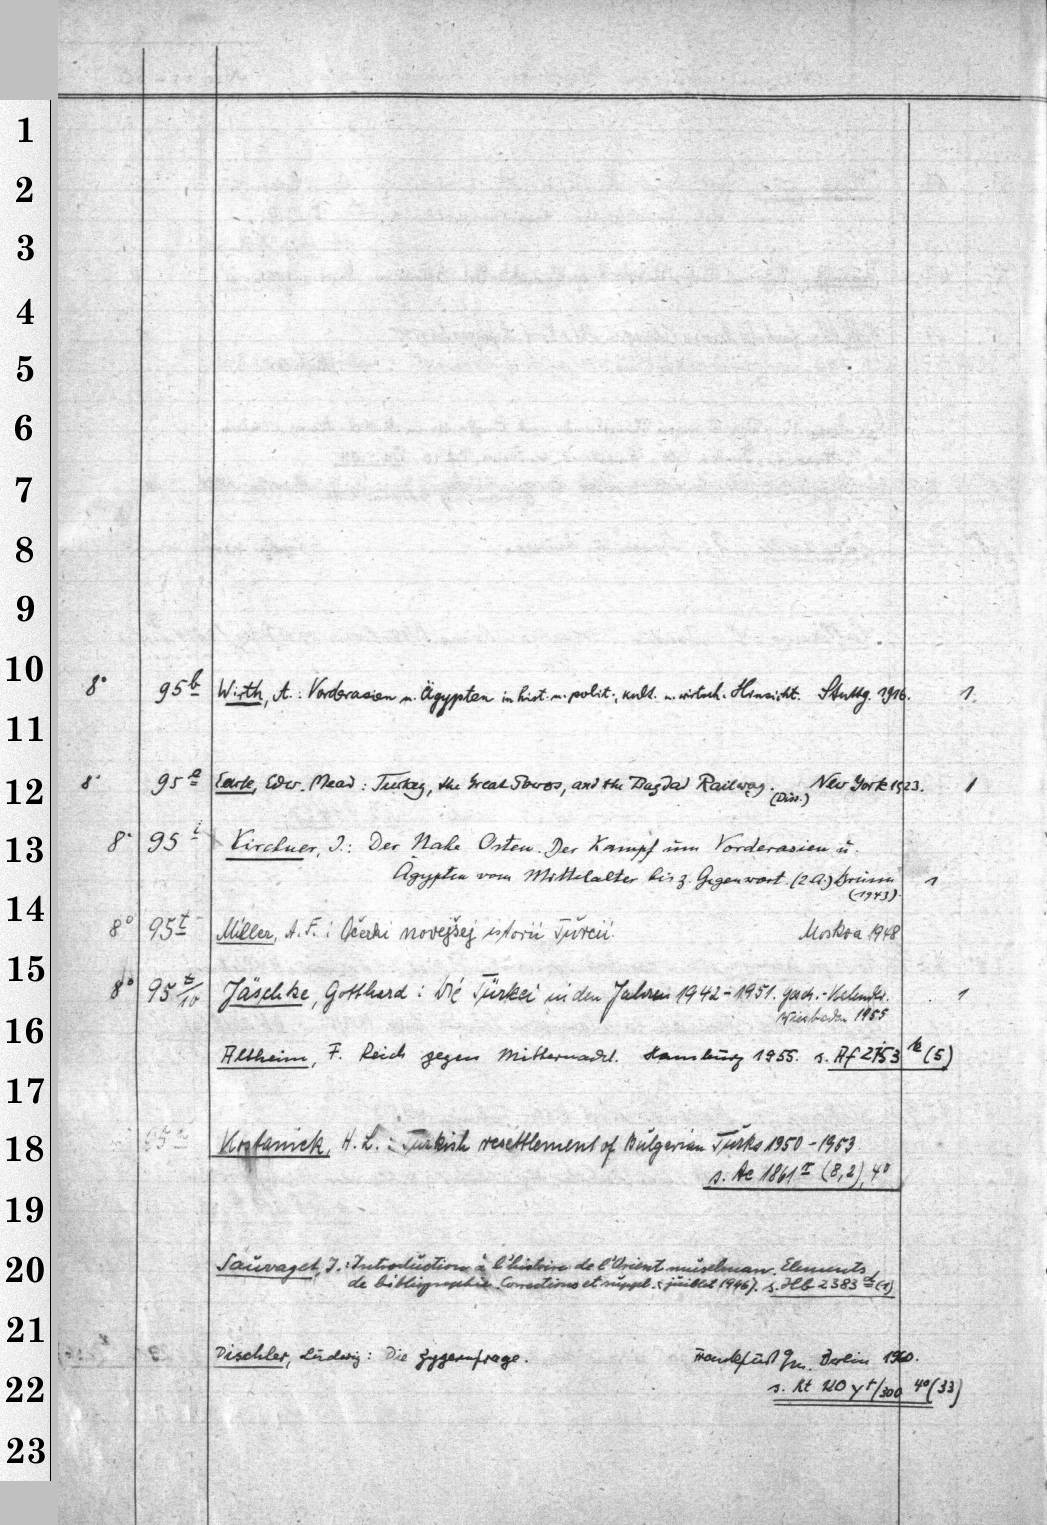 1
2
3
4
5
6
7
8
9
10
8° 95 b Wirth, A.: Vorderasien u. Ägypten in hist. u. polit., kult. u. wirtsch. Hinsicht. Stuttg. 1916. 1.
11
12
8° 95 e Earle, Edw. Mead: Turkey, the Great Powers, and the Bagdad Railway. (Diss.) New York 1923. 1
13
8° 95 i Kirchner, J.: Der Nahe Osten. Der Kampf um Vorderasien u.
Ägypten vom Mittelalter bis z. Gegenwart. (2.A.) Brünn (1943). 1
14
8° 95 t Miller, A. F.: Očerki novejšej istorii Turcii. Moskva 1948
15
8° 95 t/10 Jäschke, Gotthard: Die Türkei in den Jahren 1942-1951. Gesch.-Kalender. 1
Wiesbaden 1955
16
Altheim, F. Reich gegen Mitternacht. Hamburg 1955. s. Af 2153 k (5)
17
18
95 Kostanick, H. L.: Turkish resettlement of Bulgarian Turks 1950-1953.
s. Ac 1861 (8,2), 4°
19
20
Sauvaget, J.: Introduction à l'histoire de l'Orient musulman. Elements
de bibliographie. Corrections et suppl. (juillet 1946). s. Hb 2383 (1)
21
Dischler, Ludwig: Die Zypernfrage. Frankfurt/M. Berlin 1960.
22
s. Kt 210 yt/300 4° (33)
23